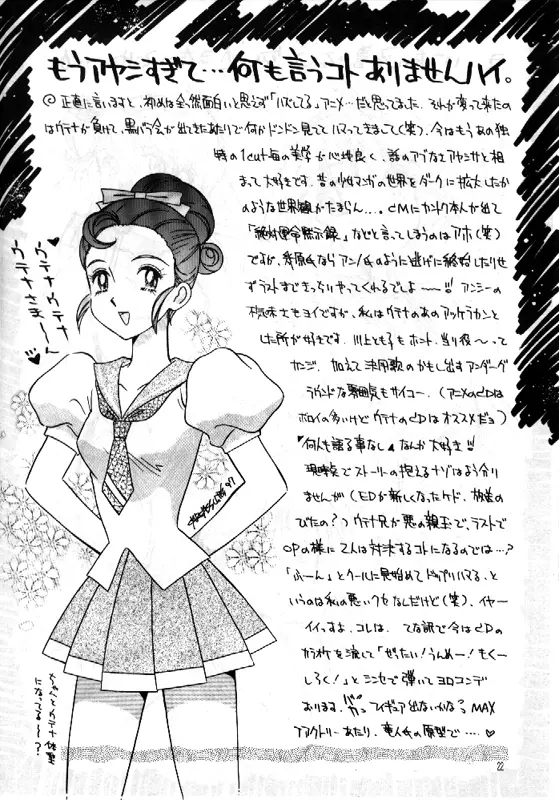 もうアヤシすぎて…何も言うコトありませんハイ。
◎正直に言いますと、初めは全然面白いと思えず「ハズしてる」アニメ…だと思ってました。それが変って来たの
はウテナが負けて、黒バラ会が出てきたあたりで何かドンドン見ててハマってきまして(笑)、今はもうあの独
特の1cut毎の美学が心地良く、話のアブなさアヤシサと相
まって大好きです。昔の少女マンガの世界をダークに拡大したか
のような世界観がたまらん…。CMにカントク本人が出て
「絶対運命黙示録」などと言ってしまうのはアホ(笑)
ですが、幾原氏なら アン/氏のように逃げに終始したりせ
ずラストまできっちりやってくれるでしょ〜!! アンシーの
不気味さもヨイですが、私はウテナのあのアッケラカンと
した所が好きです。川上とも子も ホント、当り役〜って
カンジ。加えて決闘歌のかもし出すアンダーグ
ラウンドな雰囲気もサイコー。(アニメのCDは
ボロイの多いけど ウテナのCDはオススメだョ)
"何人も語る事なし"なんか大好き!!
現時点でストーリーの抱えるナゾはよう分り
ませんが(EDが新しくなったケド、放送の
びたの?)ウテナ兄が悪の親玉で、ラストで
OPの様に2人は対決するコトになるのでは…?
「ふーん」とクールに見始めてドップリハマる、と
いうのは私の悪いクセなんだけど(笑)、イヤー
イイっすよ、コレは。 てな訳で今はCDの
カラオケを流して「ぜったい!うんめー!もくー
しろく!」とシンセで弾いてヨロコンデ
おります。バカ。フィギュア出ないかな? MAX
ファクトリーあたり、竜人氏の原型で……♥
ウテナウテナ
ウテナさまー〜ん
97
ちゃんとウテナ体型
になってる〜?
22